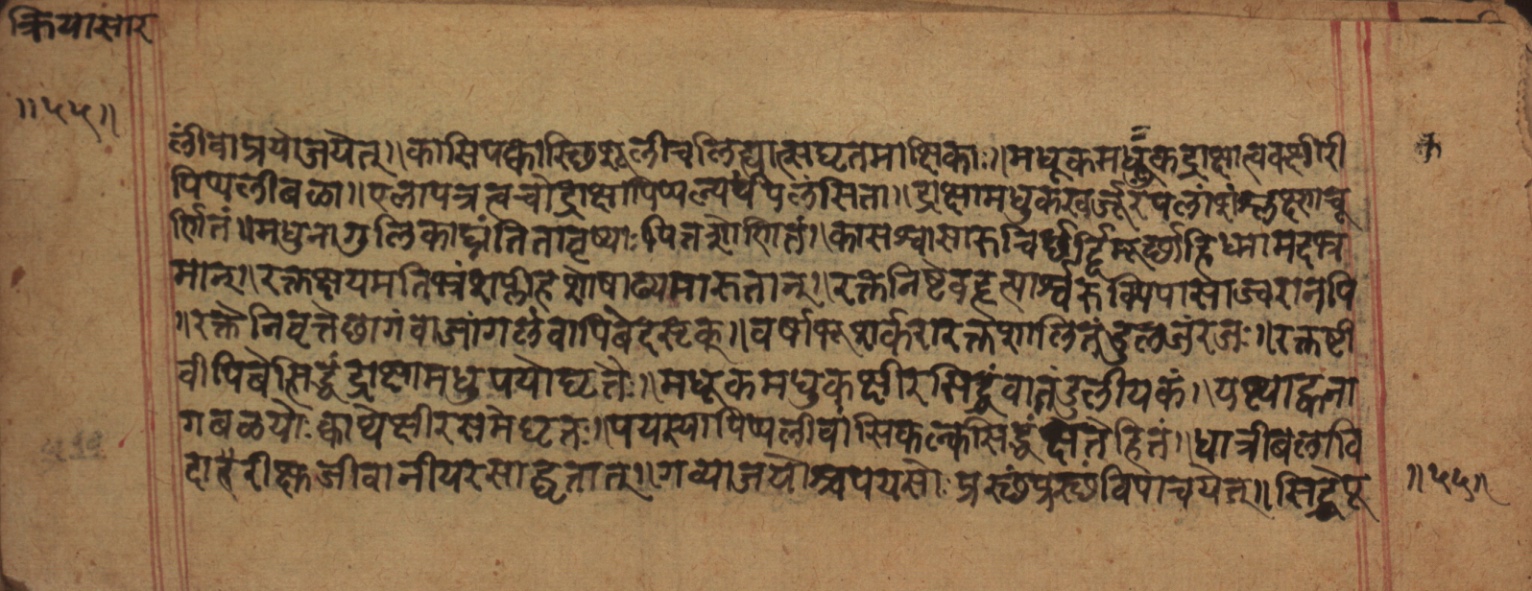 क्रियासार
॥५५॥
लीवाप्रयोजयेत्॥कासिपक्वास्छिशूलीचलिह्यात्सघृतमाक्षिकाः॥मधूकमधुकद्राक्षात्वक्क्षीरी
पिप्पलीबळा॥एलापत्रत्वचोद्राक्षापिप्पल्यर्धपलंसिता॥द्राक्षामधुकखर्जूरपलांशंश्लक्ष्णचू
र्णितं॥मधुनागुलिकाघ्नंतितावृष्याःपित्तशोणितं॥कासश्वासारुचिर्छर्दिमूर्छाहिध्मामदभ्र
मान्॥रक्तक्षयमतिभ्रंशप्लीहशोषाढ्यमारुतान्॥रक्तनिष्टीवहृत्पार्श्वरुक्पिपासाज्वरानपि
॥रक्तेनिवृत्तेछागंवाजांगलंवापिबेदसृक्॥वर्षाभूशर्करारक्तशालितंडुलजंरजः॥रक्तष्टी
वीपिबेत्सिद्धंद्राक्षामधुपयोघृतैः॥मधूकमधुकक्षीरसिद्धंवातंडुलीयकं॥यष्ट्याह्वना
गबळयोःक्वाथेक्षीरसमेघृतः॥पयस्यापिप्पलीवांसिकल्केसिद्धंक्षतेहितं॥धात्रीबलावि
दारीक्षुजीवानीयरसाद्घृतात्॥गव्याजयोश्चपयसोःप्रस्छंप्रस्छंविपाचयेत्॥सिद्धपू
॥५५॥